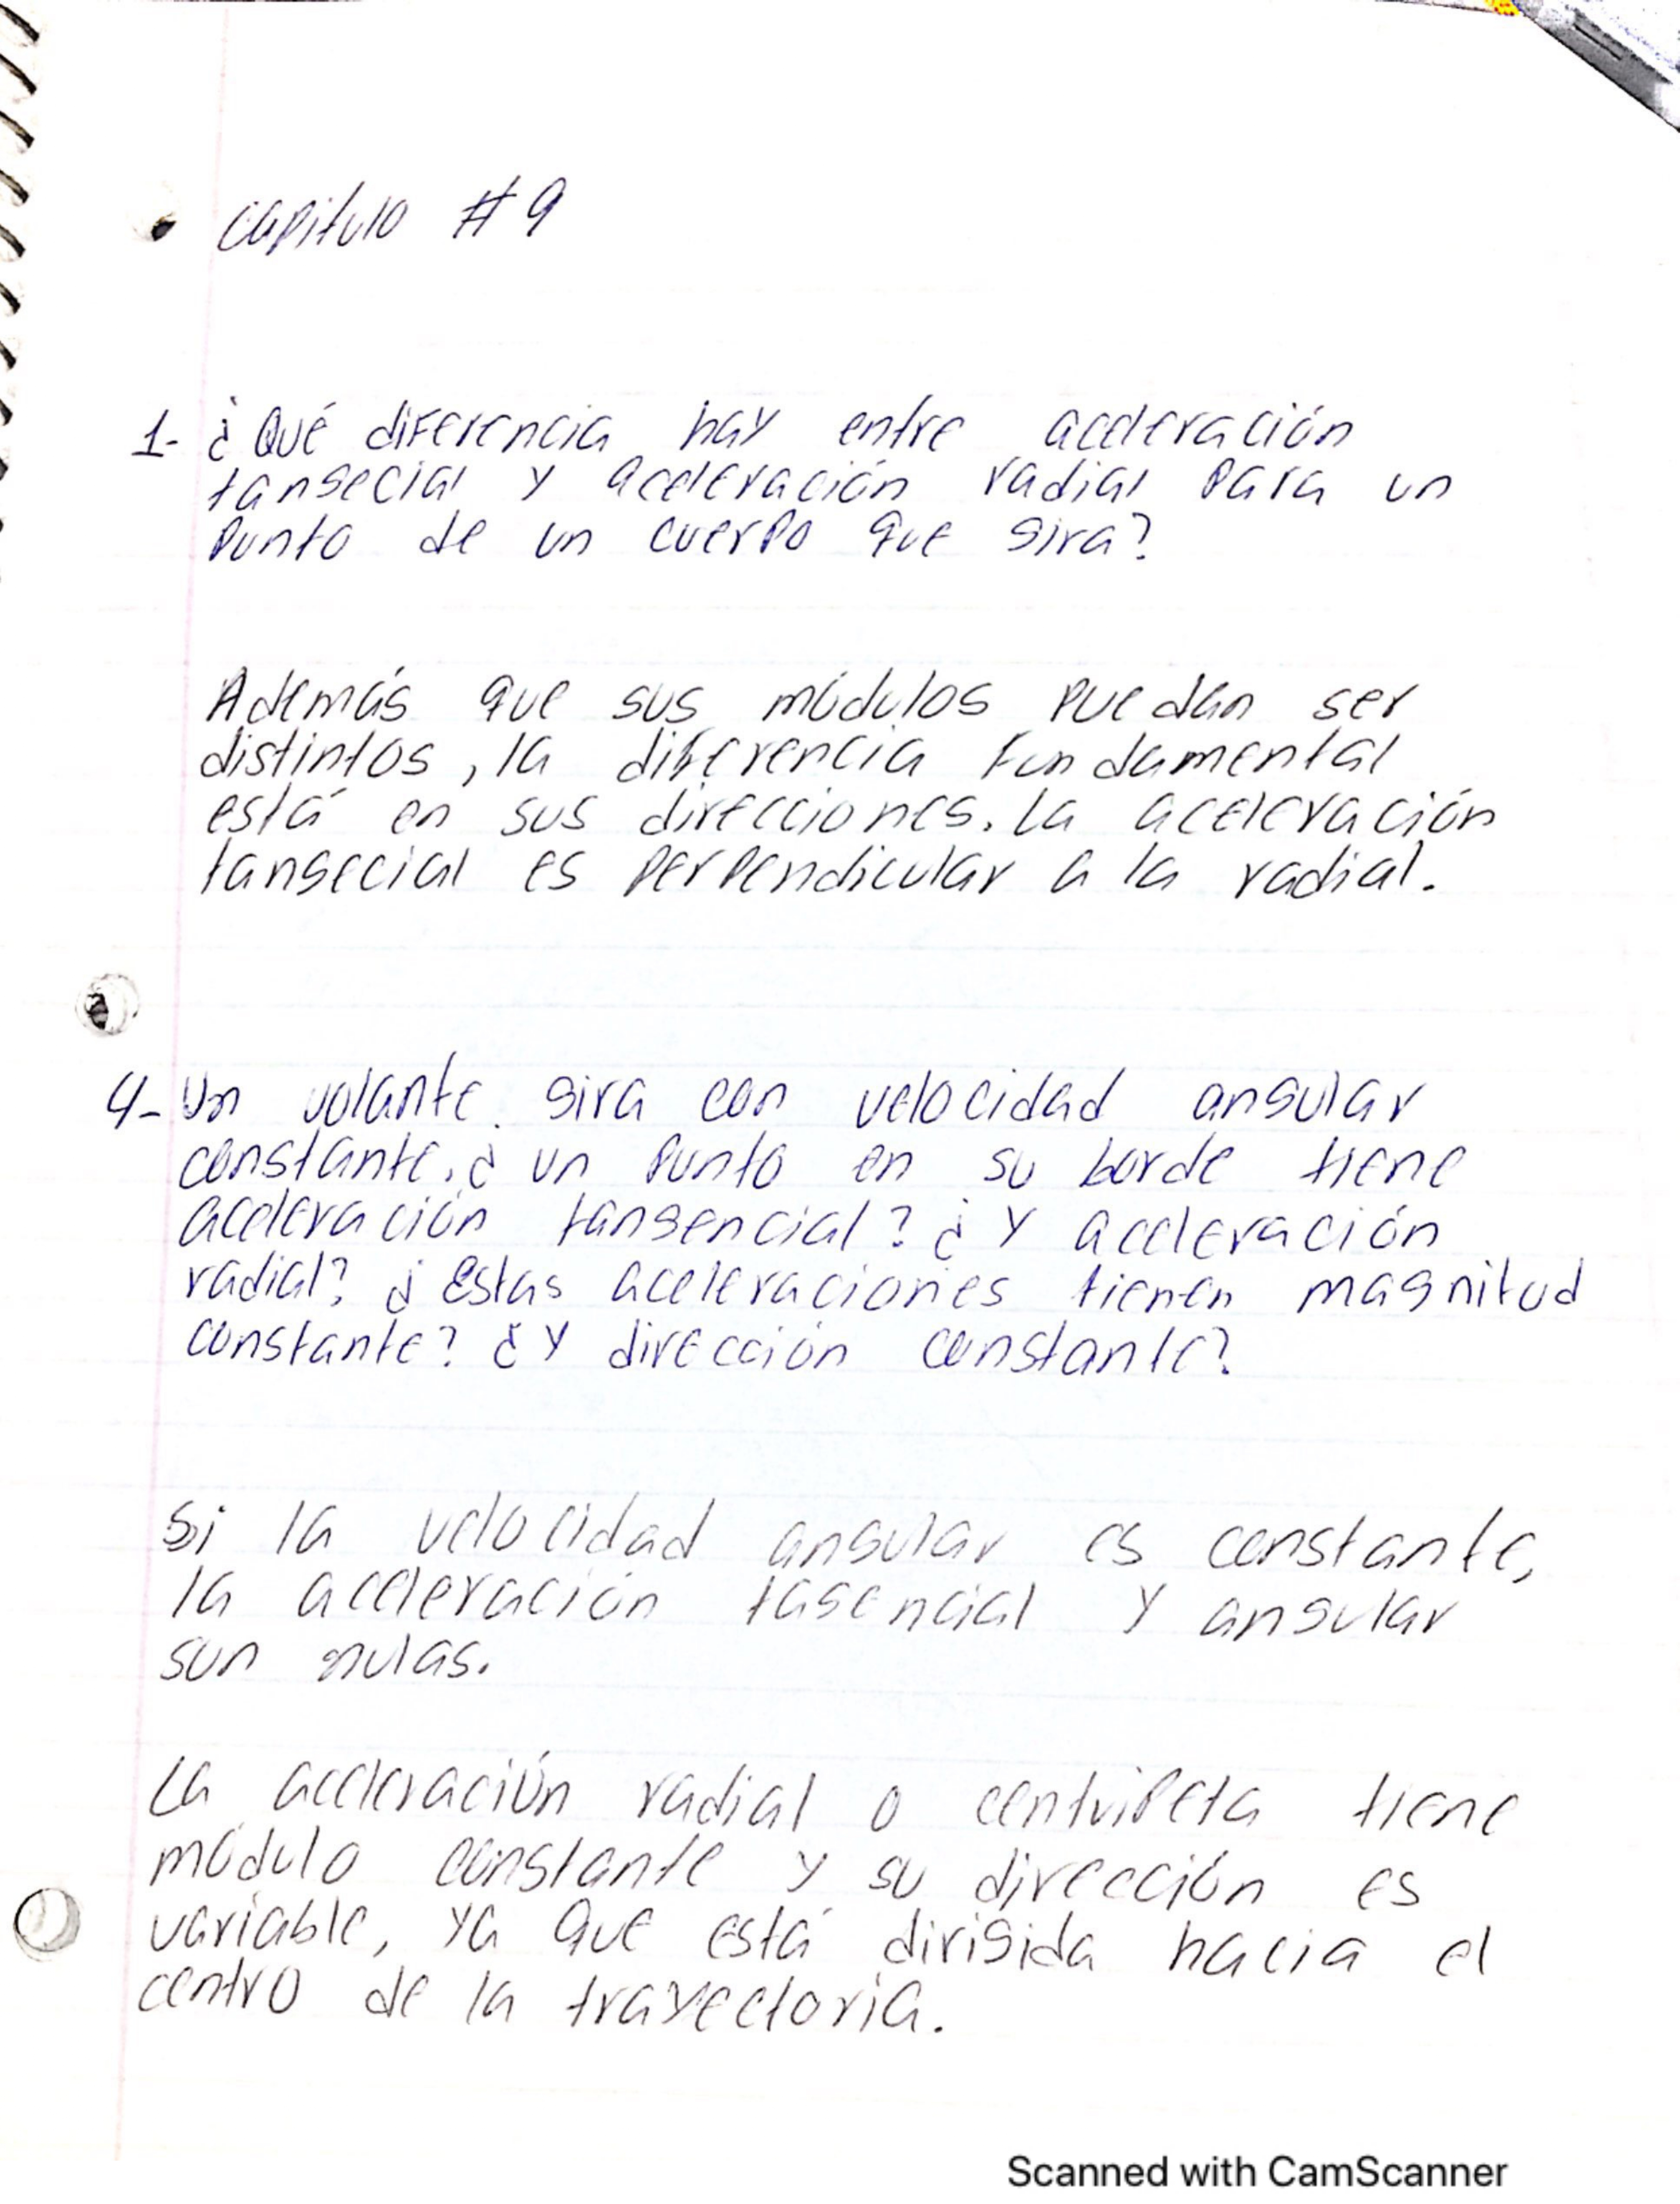 • capitulo # 9
1- ¿Qué diferencia hay entre aceleración
tangecial y aceleración radial para un
punto de un cuerpo que gira?
Además que sus módulos puedan ser
distintos, la diferencia fundamental
está en sus direcciones. La aceleración
tangecial es perpendicular a la radial.
4- Un volante. gira con velocidad angular
constante. ¿ un punto en su borde tiene
aceleración tangencial? ¿ y aceleración
radial? ¿ Estas aceleraciones tienen magnitud
constante? ¿ y dirección constante?
Si la velocidad angular es constante,
la aceleración tagencial y angular
son nulas.
La aceleración radial o centripeta tiene
módulo constante y su dirección es
variable, ya que está dirigida hacia el
centro de la trayectoria.
Scanned with CamScanner